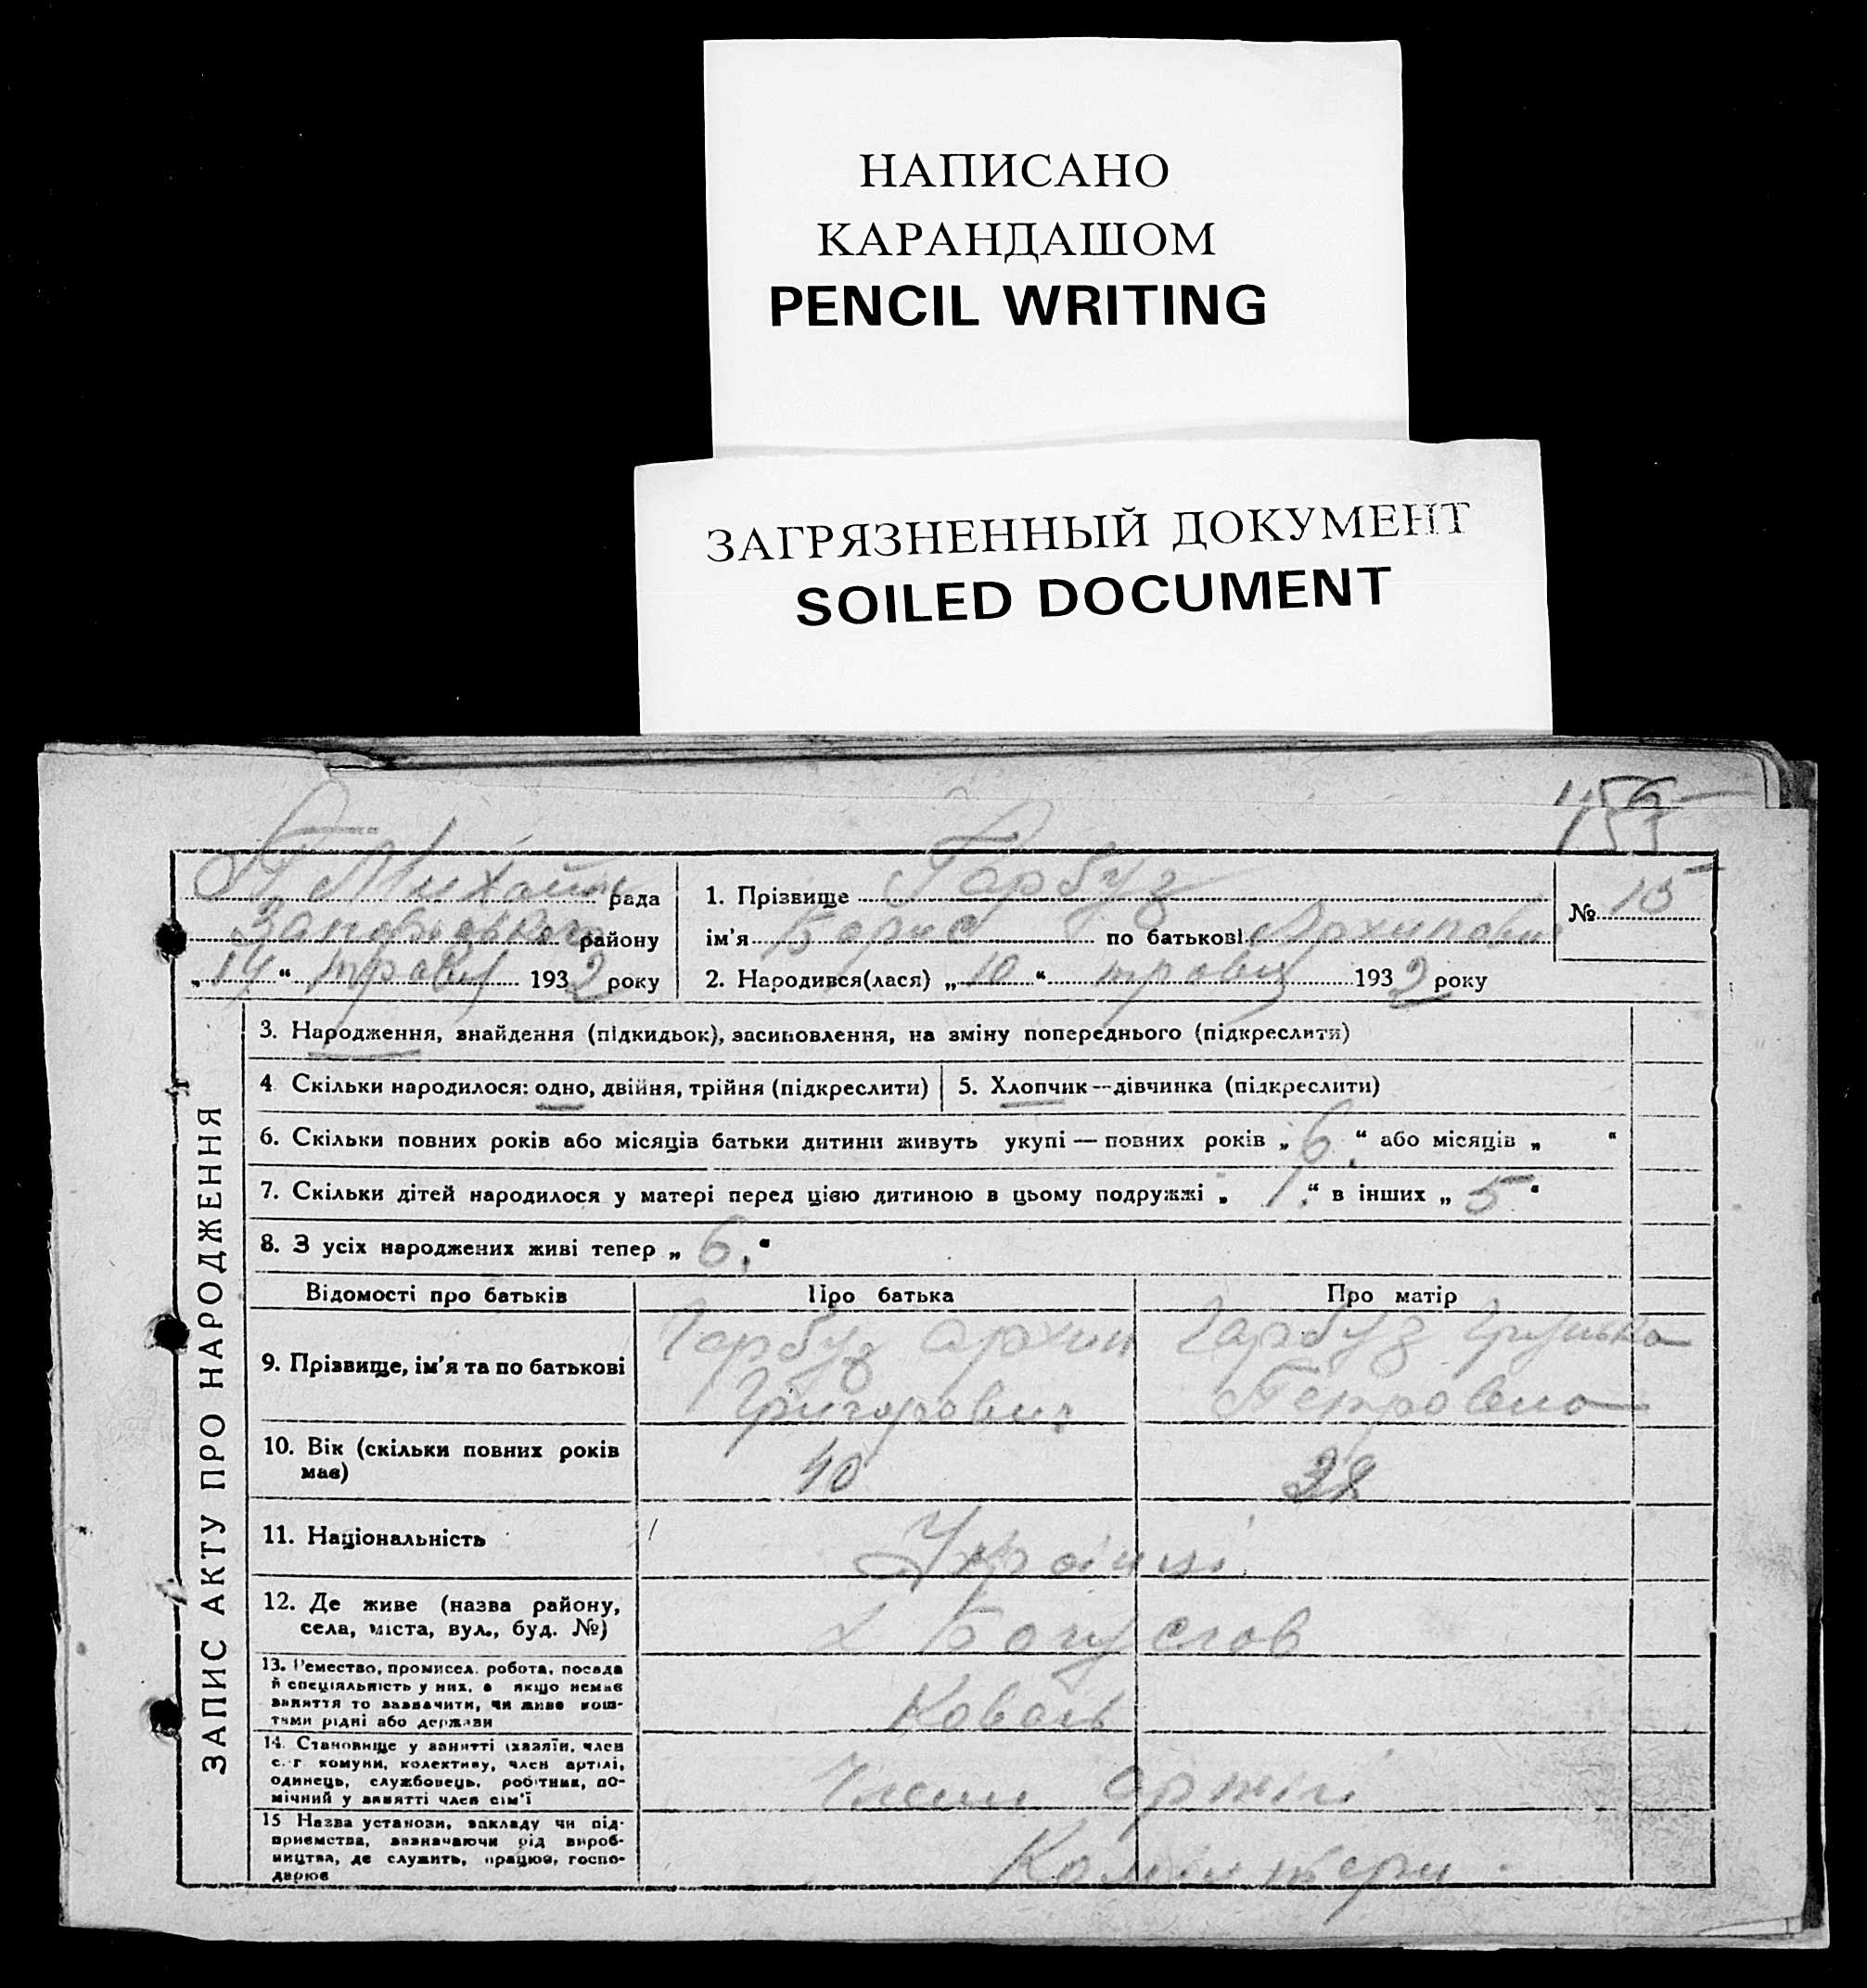 НАПИСАНО
КАРАНДАШОМ
PENCIL WRITING
ЗАГРЯЗНЕННЫЙ ДОКУМЕНТ
SOILED DOCUMENT
рада
1. Прізвище Гарбуз
№ 15
Запорізького району
ім'я Борис по батькові Архипович
„14“ травня 1932 року
2. Народився(лася) „10“ травня 1932 року
ЗАПИС АКТУ ПРО НАРОДЖЕННЯ
3. Народження, знайдення (підкидьок), засиновлення, на зміну попереднього (підкреслити)
4. Скільки народилося: одно, двійня, трійня (підкреслити)
5. Хлопчик—дівчинка (підкреслити)
6. Скільки повних років або місяців батьки дитини живуть укупі — повних років „6.“ або місяців „ “
7. Скільки дітей народилося у матері перед цією дитиною в цьому подружжі „1.“ в інших „5“
8. З усіх народжених живі тепер „6.“
Відомості про батьків
Про батька
Про матір
9. Прізвище, ім'я та по батькові
Гарбуз Архип
Григорович
Гарбуз
Петровна
10. Вік (скільки повних років
має)
40
11. Національність
Українці
12. Де живе (назва району,
села, міста, вул., буд. №)
х Богуслов
13. Ремество, промисел, робота, посада
й спеціяльність у них, а якщо немає
заняття то зазначити, чи живе кош-
тами рідні або держави
Коваль
14. Становище у занятті (хазяїн, член
с.-г комуни, колективу, член артілі,
одинець, службовець, робітник, по-
мічний у занятті член сім'ї
Член артілі
15 Назва установи, закладу чи під-
приємства, зазначаючи рід вироб-
ництва, де служить, працює, госпо-
дарює